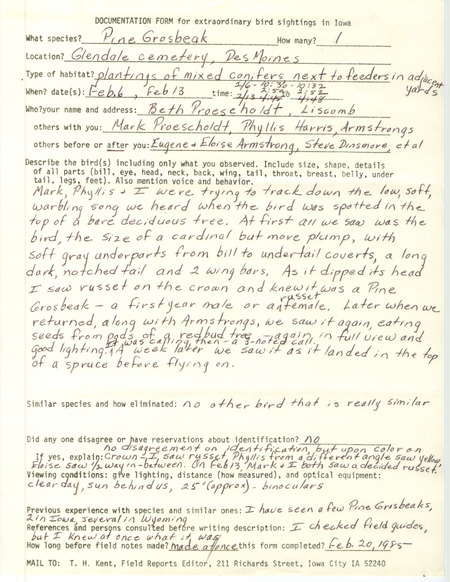 DOCUMENTATION FORM for extraordinary bird sightings in Iowa
What species? Pine Grosbeak How many? 1
Location? Glendale cemetery, Des Moines
Type of habitat? plantings of mixed conifers next to feeders in adjacent yards
When? date(s): Feb. 6, Feb 13 time: 2/6 - 10:30 - 10:32
2/13 4:45 to 4:48
Who? your name and address: Beth Proescholdt, Liscomb
others with you: Mark Proescholdt, Phyllis Harris, Armstrongs
others before or after you: Eugene & Eloise Armstrong, Steve Dinsmore, et al
Describe the bird(s) including only what you observed. Include size, shape, details
of all parts (bill, eye, head, neck, back, wing, tail, throat, breast, belly, under
tail, legs, feet). Also mention voice and behavior.
Mark, Phyllis & I were trying to track down the low, soft,
warbling song we heard when the bird was spotted in the
top of a bare deciduous tree. At first all we saw was the
bird, the size of a cardinal but more plump, with
soft gray underparts from bill to undertail coverts, a long
dark, notched tail and 2 wing bars. As it dipped its head
I saw russet on the crown and knew it was a Pine
Grosbeak - a first year male or a russet female. Later when we
returned, along with Armstrongs, we saw it again, eating
seeds from pods of a redbud tree - again in full view and
good lighting. It was calling then - a 3-noted call. A week later we saw it as it landed in the top
of a spruce before flying on.
Similar species and how eliminated: no other bird that is really similar
Did any one disagree or have reservations about identification? no
no disagreement on identification, but upon color on
If yes, explain: crown - I saw russet, Phyllis from a different angle saw yellow,
Eloise saw 1/2 way in-between. On Feb 13, Mark & I both saw a decided russet.
Viewing conditions: give lighting, distance (how measured), and optical equipment:
clear day, sun behind us, 25' (approx) - binoculars
Previous experience with species and similar ones: I have seen a few Pine Grosbeaks,
2 in Iowa, several in Wyoming
References and persons consulted before writing description: I checked field guides,
but I knew at once what it was
How long before field notes made? Made at once this form completed? Feb. 20, 1985
MAIL TO: T. H. Kent, Field Reports Editor, 211 Richards Street, Iowa City IA 52240